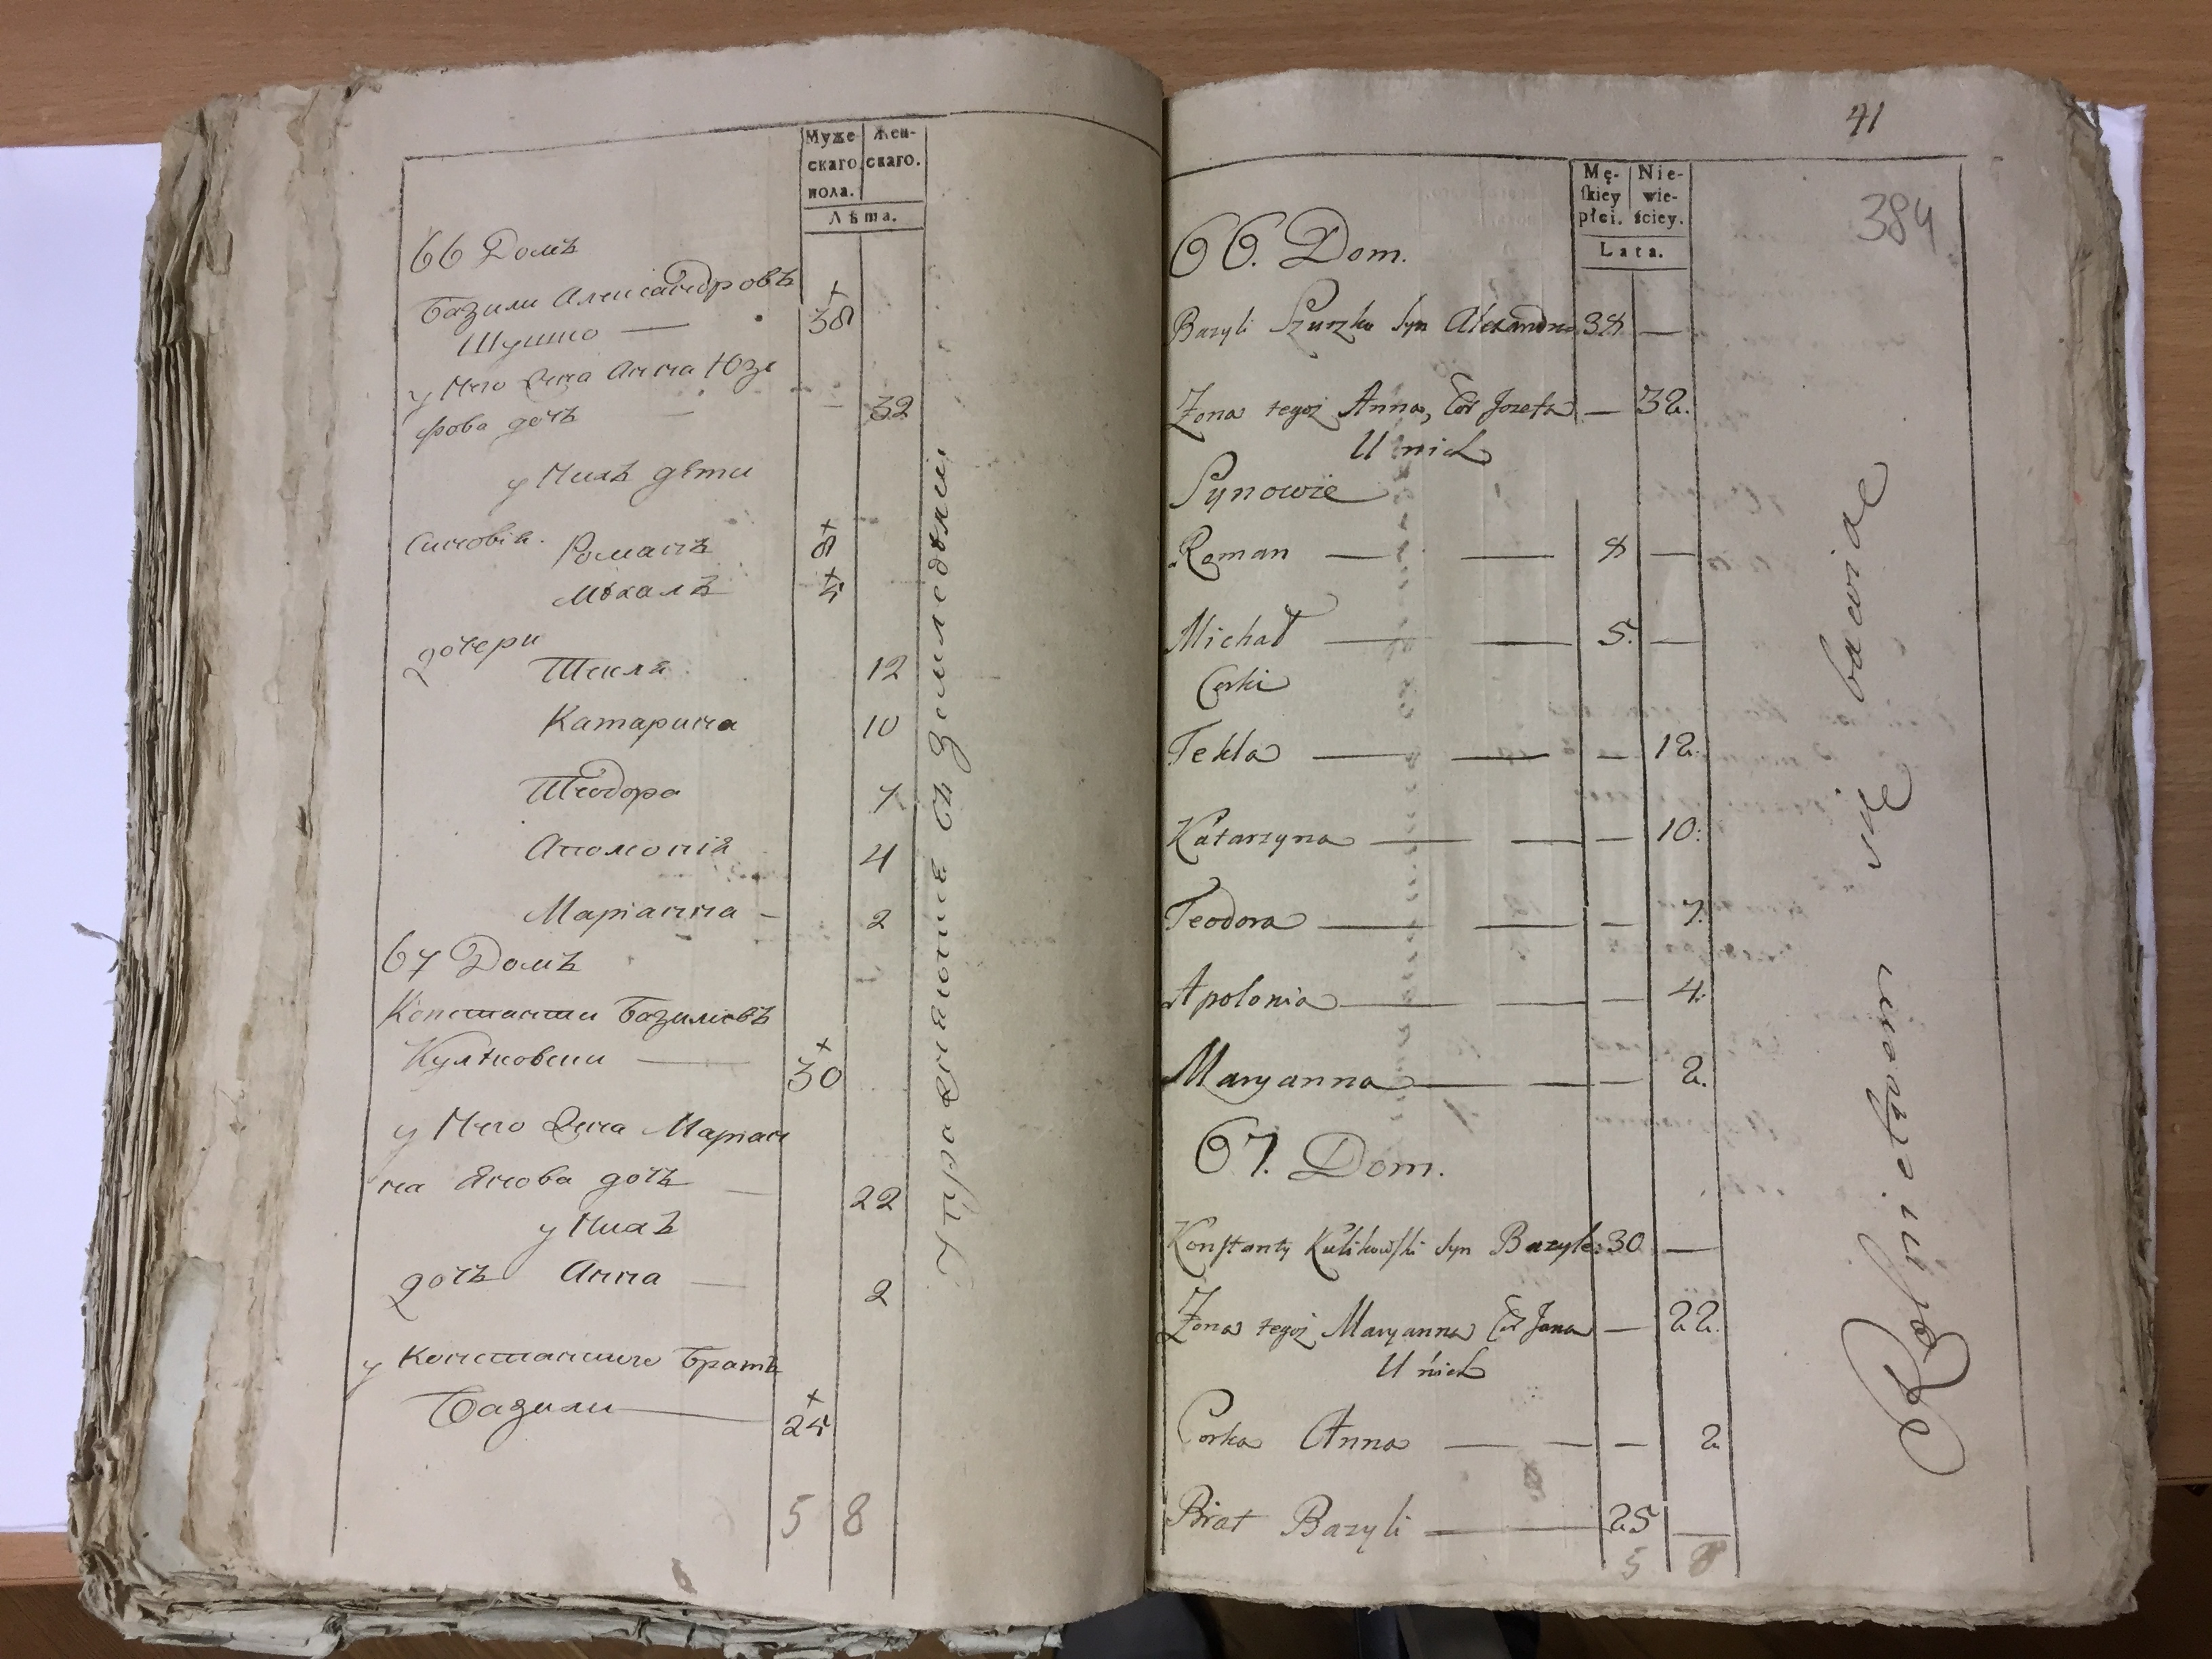 Муже
скаго
пола.
Жен-
скаго.
Лѣта.
66 Домъ
Базили Александровъ
Шушко — 38
у Него Жена Анна Юзе
фова дочь — 32
у Нихъ дѣти
Синовія. Романъ 8
Михалъ 5
дочери
Текля 12
Катарина 10
Теодора 7
Аполонія 4
Маріанна - 2
67 Домъ
Константи Базилювъ
Куликовски — 30
у Него Жена Маріан
на Янова дочь — 22
у Нихъ
дочь Анна — 2
у Константего братъ
Базили — 25
5 8
Упражняютсе съ Земледѣнии
41
384
Mę-
skiey
płci.
Nie-
wie-
ściey.
Lata.
66. Dom.
Bazyli Szuszko Syn Alexandra 38 —
Zona tegoż Anna, Cór Jozefa — 32.
U nich
Synowie
Roman — — 8 —
Michał — — 5. —
Corki
Tekla — — — 12.
Katarzyna — — — 10.
Teodora — — — 7.
Apolonia — — — 4.
Maryanna — — — 2.
67. Dom.
Konstanty Kulikowski Syn Bazyle: 30 —
Zona tegoż Maryanna Cór Jana — 22.
U nich
Corka Anna — — — 2
Brat Bazyli — 25 —
5 8
Rolnictwem się bawiąc